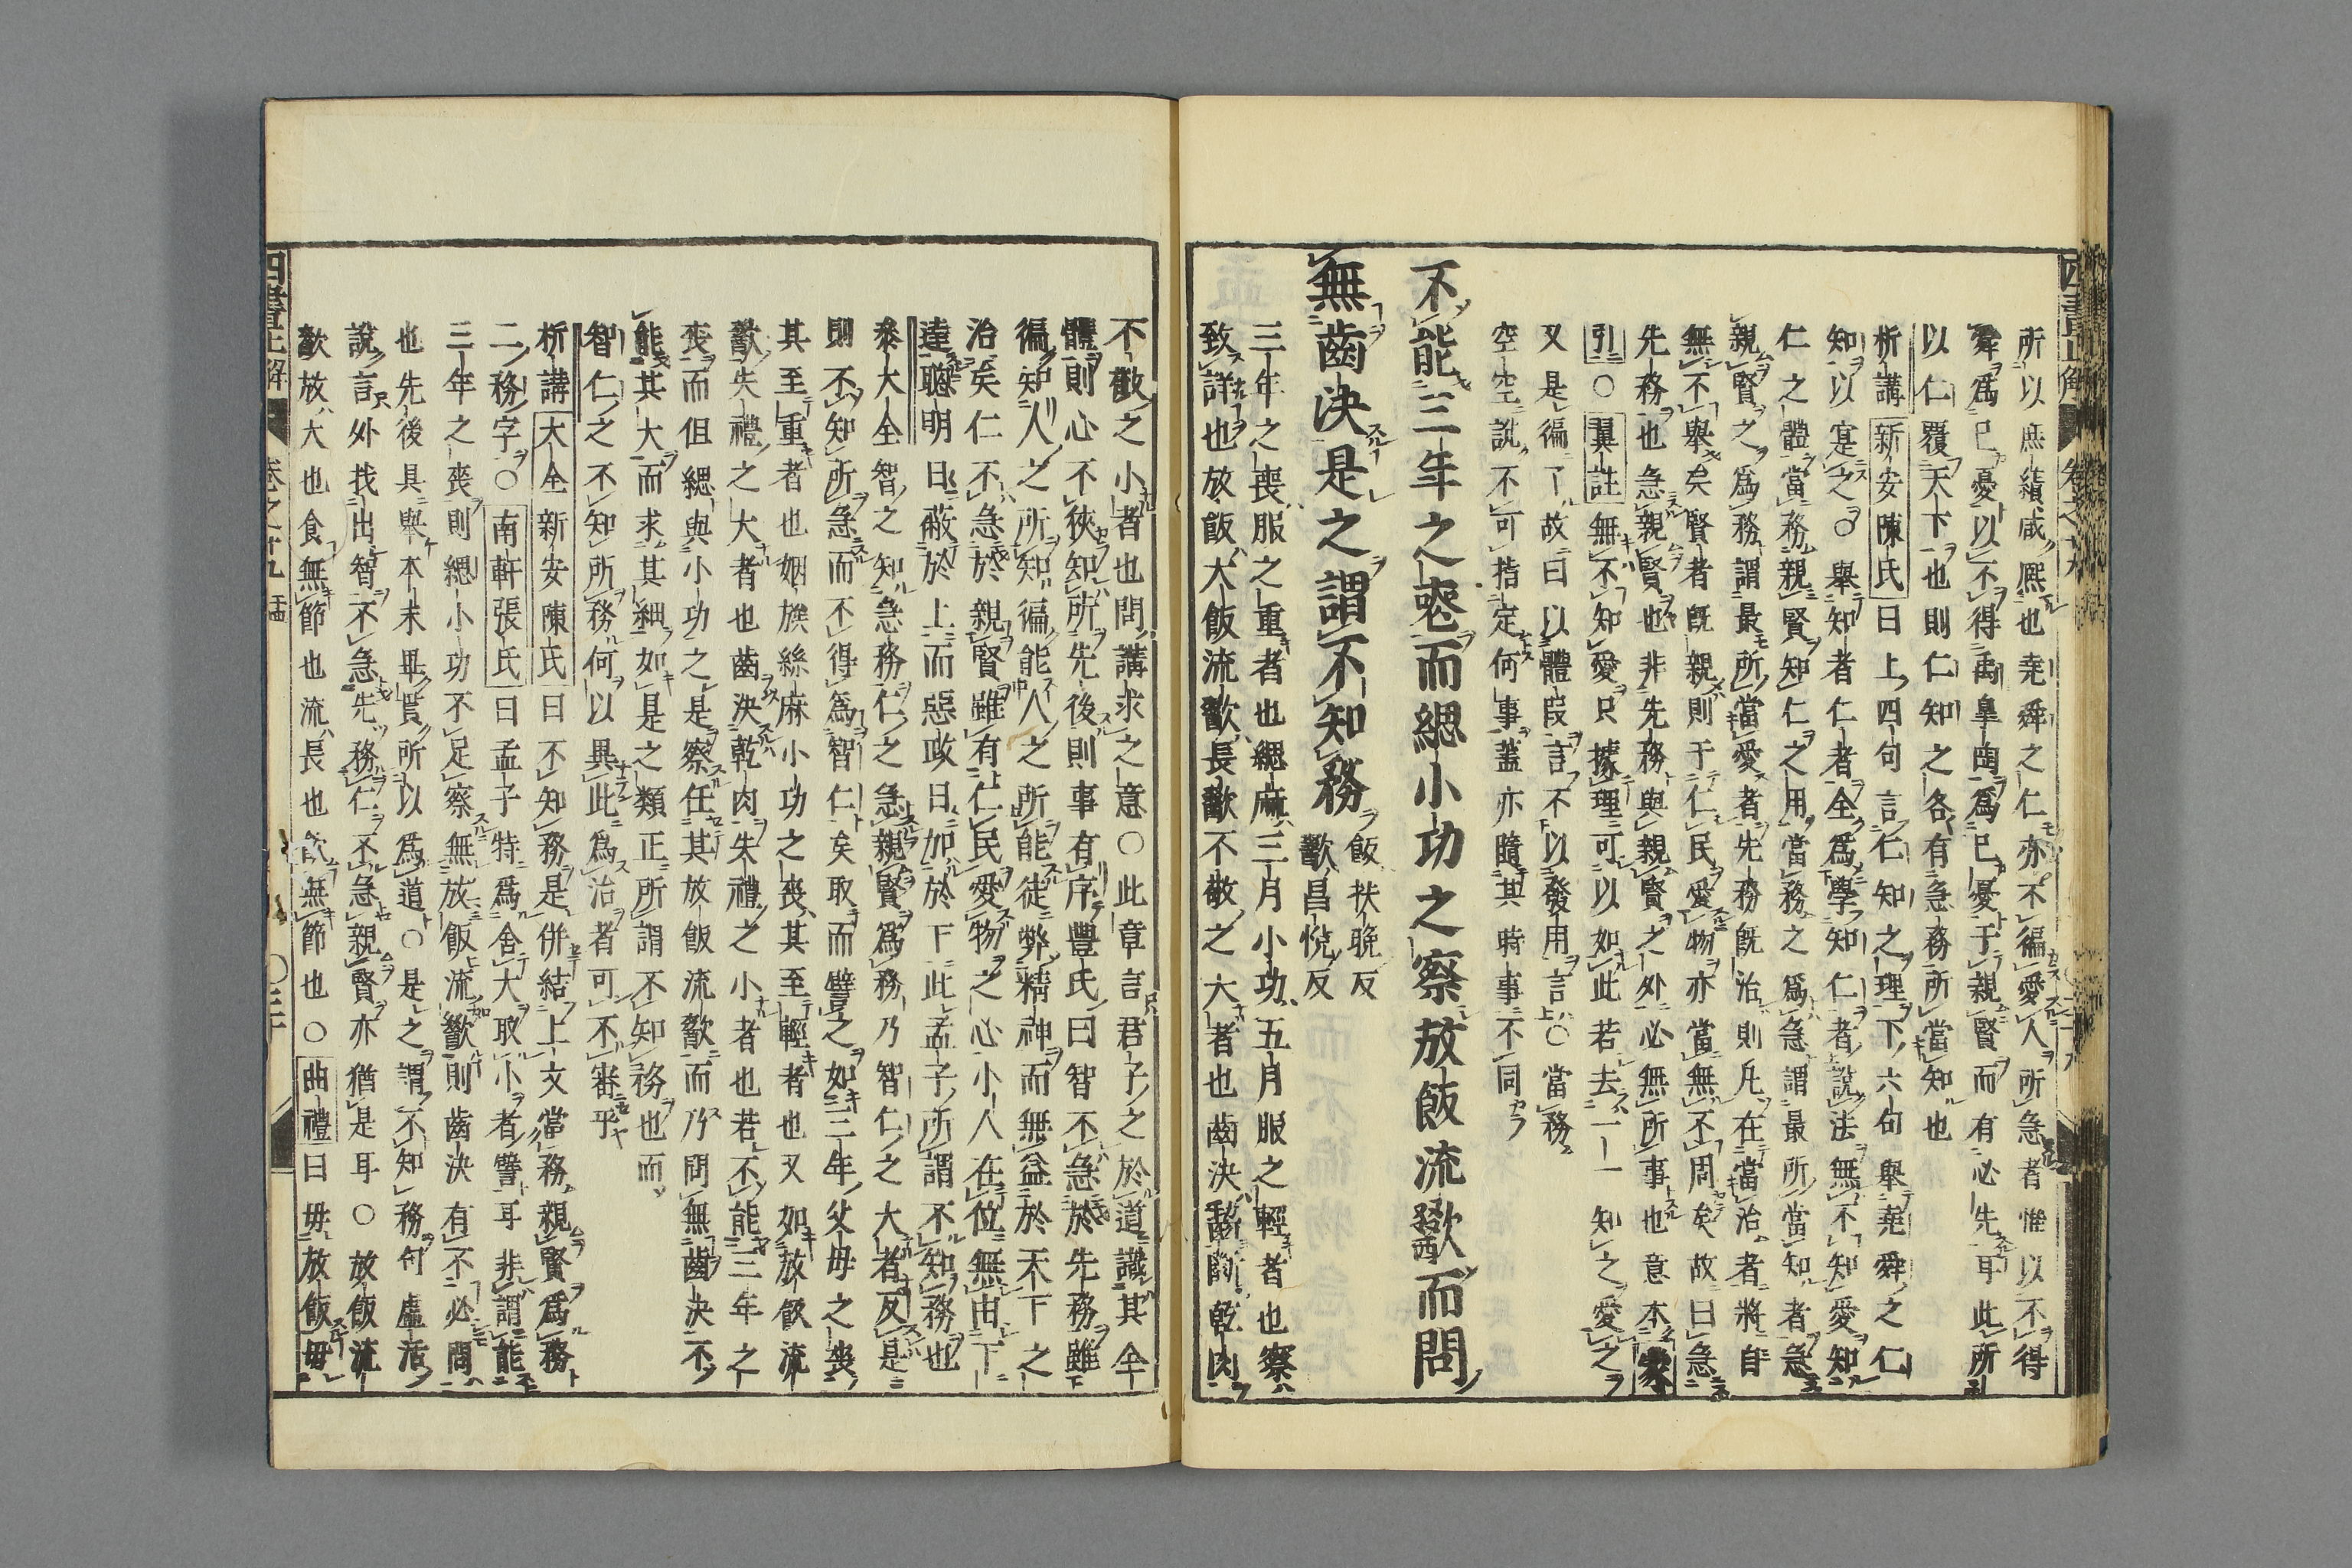 所以庶績咸熈也堯舜之仁亦不徧愛人所急者惟以不得
舜爲己憂以不得禹皐陶爲己憂于親賢而有必先耳此所
以仁覆天下也則仁知之各有急務所當知也
析講新安陳氏曰上四句言仁知之理下六句舉堯舜之仁
知以寔之○舉知者仁者全爲學知仁者說法無不知愛知
仁之體當務親賢知仁之用當務之爲急謂最所當知者急
親賢之爲務謂最所當愛者先務既治則凡在當治者將自
無不舉矣賢者既親則于仁民愛物亦當無不周矣故曰急
先務也急親賢也非先務與親賢之外必無所事也意本蒙
引○翼註無不知愛只據理可以如此若去一一知之愛之
又是徧了故曰以體叚言不以發用言○當務
空空說不可指定何事蓋亦隨其時事不同
不能三年之喪而緦小功之察放飯流歠而問
無齒決是之謂不知務
飯扶晚反
歠昌悅反
三年之喪服之重者也緦麻三月小功五月服之輕者也察
致詳也放飯大飯流歠長歠不敬之大者也齒決齧斷乾肉
不敬之小者也問講求之意○此章言君子之於道識其全
體則心不狹知所先後則事有序豐氏曰智不急於先務雖
徧知人之所知徧能人之所能徒弊精神而無益於天下之
治矣仁不急於親賢雖有仁民愛物之心小人在位無由下
達聰明日蔽於上而惡政日加於下此孟子所謂不知務也
叅大全智之知急務仁之急親賢爲務乃智仁之大者反是
則不知所急而不得爲智仁矣取而譬之如三年父母之喪
其至重者也姻族絲麻小功之喪其至輕者也又如放飯流
歠失禮之大者也齒決乾肉失禮之小者也若不能三年之
喪而但緦與小功之是察任其放飯流歠而乃問無齒決不
能其大而求其細如是之類正所謂不知務也而
智仁之不知所務何以異此爲治者可不審乎
析講大全新安陳氏曰不知務是併結上文當務親賢爲務
二務字○南軒張氏曰孟子特爲舍大取小者譬耳非謂能
三年之喪則緦小功不足察無放飯流歠則齒決有不必問
也先後具舉本末畢貫所以爲道○是之謂不知務句虛活
說言外找出智不急先務仁不急親賢亦猶是耳○放飯流
歠放大也食無節也流長也飲無節也○曲禮曰毋放飯毋
四書正解
卷之十九